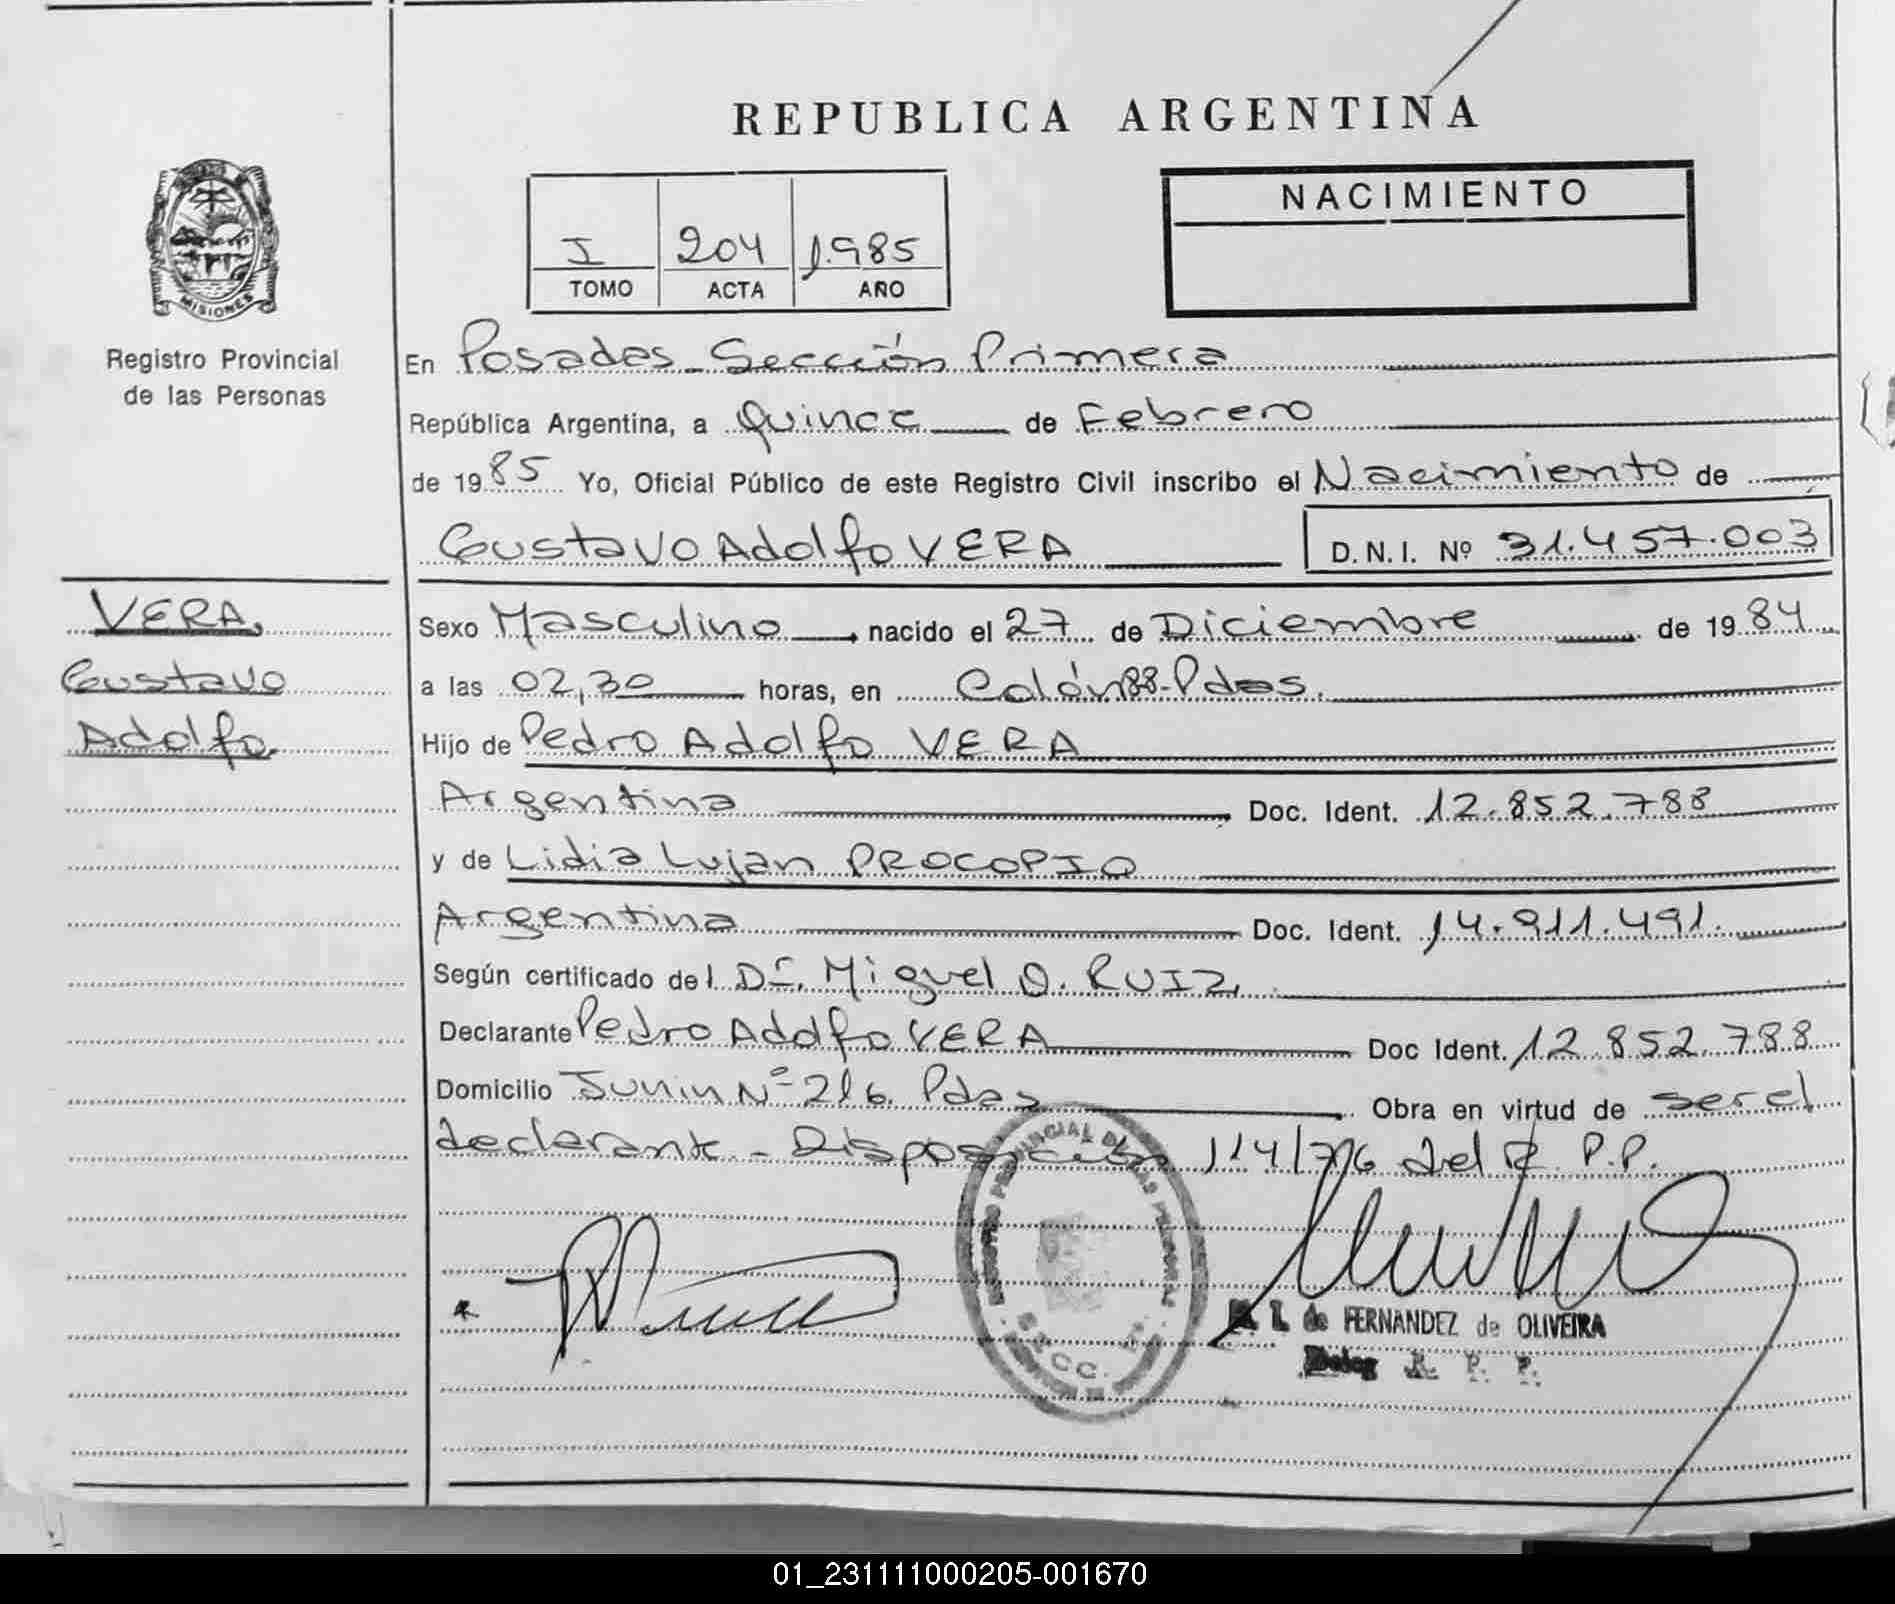 REPUBLICA ARGENTINA
MISIONES
Registro Provincial
de las Personas
I 204 1.985
TOMO ACTA AÑO
NACIMIENTO
En Posadas - Sección Primera
República Argentina, a Quince de Febrero
de 1985 Yo, Oficial Público de este Registro Civil inscribo el Nacimiento de
Gustavo Adolfo VERA D.N.I. Nº 31.457.003
VERA,
Gustavo
Adolfo.
Sexo Masculino, nacido el 27 de Diciembre de 1984
a las 02,30 horas, en Colón 88-Pdas.
Hijo de Pedro Adolfo VERA
Argentina Doc. Ident. 12.852.788
y de Lidia Lujan PROCOPIO
Argentina Doc. Ident. 14.911.491.
Según certificado del Dr. Miguel O. RUIZ.
Declarante Pedro Adolfo VERA Doc Ident. 12.852.788
Domicilio Junin Nº 216. Pdas Obra en virtud de ser el
declarante - Disposición 114/76 del R. P.P.
REGISTRO PROVINCIAL DE LAS PERSONAS
L. de FERNANDEZ de OLIVEIRA
Deleg R. P. P.
01_231111000205-001670